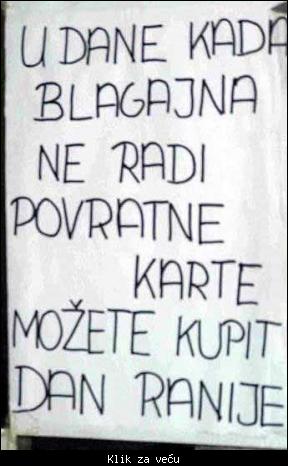 U DANE KADA
BLAGAJNA
NE RADI
POVRATNE
KARTE
MOŽETE KUPIT
DAN RANIJE
Klik za veču